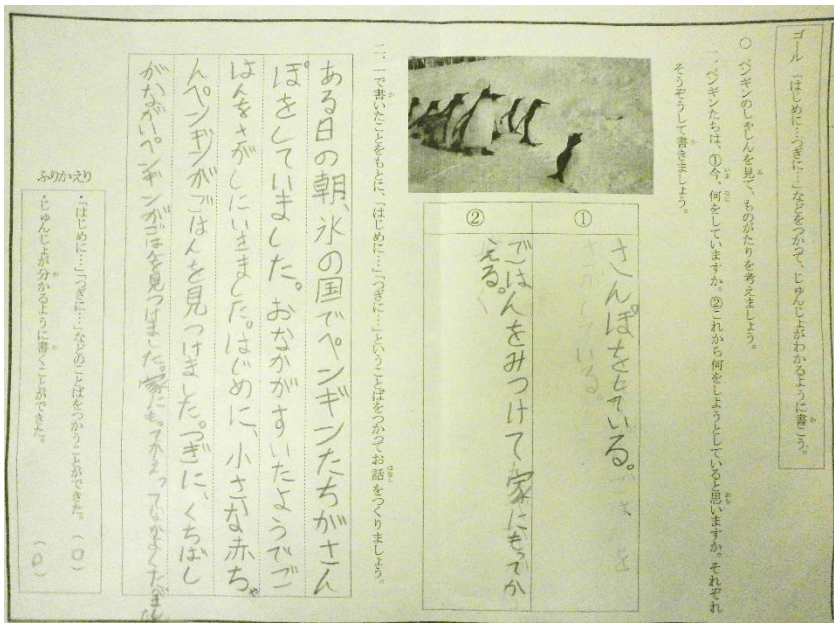 ゴール 「はじめに…つぎに…」などをつかって、じゅんじょがわかるように書こう。
○ ペンギンのしゃしんを見て、ものがたりを考えましょう。
一、ペンギンたちは、①今、何をしていますか。②これから何をしようとしていると思いますか。それぞれ
そうぞうして書きましょう。
①
さんぽをしている。
②
ごはんをみつけて家にもってか
える。
二、一で書いたことをもとに、「はじめに…」「つぎに…」ということばをつかってお話をつくりましょう。
ある日の朝、氷の国でペンギンたちがさん
ぽをしていました。おなかがすいたようでご
はんをさがしにいきました。はじめに、小さな赤ちゃ
んペンギンがごはんを見つけました。つぎに、くちばし
がながいペンギンがごはんを見つけました。家にもってかえってなかよくたべました
ふりかえり
・「はじめに…」「つぎに…」などのことばをつかうことができた。（○）
・じゅんじょが分かるように書くことができた。（○）